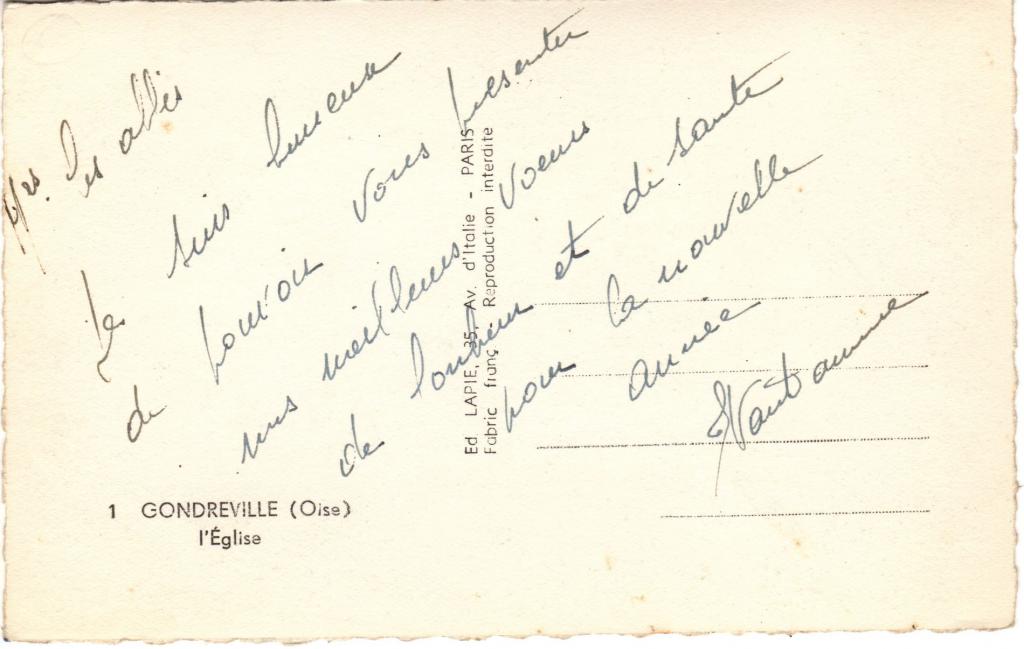 Mrs. les abbés
Je suis heureux
de pouvoir vous présenter
mes meilleurs voeux
de bonheur et de santé
pour la nouvelle
année
Ed LAPIE, 35, Av. d'Italie - PARIS
Fabric franç Reproduction interdite
1 GONDREVILLE (Oise)
l'Église